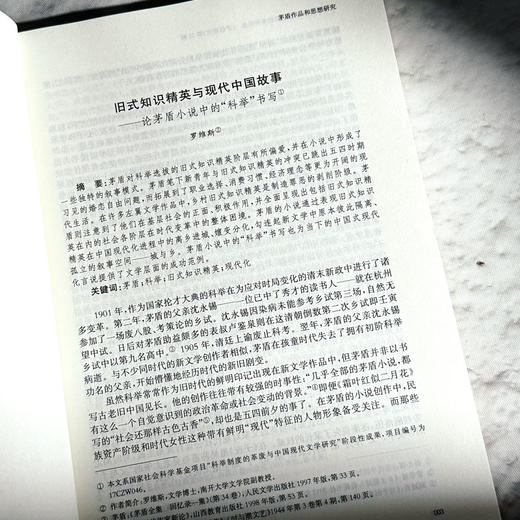 茅盾作品和思想研究
旧式知识精英与现代中国故事
——论茅盾小说中的“科举”书写①
罗维斯②
摘 要:茅盾对科举选拔的旧式知识精英阶层有所偏爱，并在小说中形成了
一些独特的叙事模式。茅盾笔下新青年与旧式知识精英的冲突已跳出五四时期
习见的婚恋自由问题，而拓展到了职业选择、消费习惯、经济理念等更为开阔的现
代生活。在许多左翼文学作品中，乡村旧式知识精英是制造罪恶的剥削阶级。茅
盾则注意到了他们在基层社会的正面、积极作用，并全面呈现出包括旧式知识精
英在内的社会各阶层在时代变革中的整体困境。茅盾的小说通过表现旧式知识
精英在中国现代化进程中的离乡进城、嬗变分化，勾连起新文学中原本彼此隔离、
孤立的叙事空间——城与乡。茅盾小说中的“科举”书写也为当下的中国式现代
化言说提供了文学层面的成功范例。
关键词:茅盾;科举;旧式知识精英;现代化
1901年，作为国家抡才大典的科举在为应对时局变化的清末新政中进行了诸
多变革。第二年，茅盾的父亲沈永锡——一位已中了秀才的读书人——就在杭州
参加了一场废八股、考策论的乡试。沈永锡因染病未能参考乡试第三场，自然无
望中试。日后对茅盾助益颇多的表叔卢鉴泉则在这清朝倒数第二次乡试即壬寅
乡试中以第九名高中。③1905年，清廷上谕废止科考。翌年，茅盾的父亲沈永锡
病逝。与不少同时代的新文学创作者相似，茅盾在孩童时代失去了拥有初阶科举
功名的父亲，开始懵懂地经历时代的新旧剧变。
虽然科举常常作为旧时代的鲜明印记出现在新文学作品中，但茅盾并非以书
写古老旧中国见长。他的创作往往带有较强的时事性:“几乎全部的茅盾小说，都
有这么一个自觉意识到的政治革命或社会变动的背景。”④即便《霜叶红似二月花》
写的“社会还那样古色古香”⑤，却也是五四前夕的事了。在茅盾的小说创作中，民
族资产阶级和时代女性这种带有鲜明“现代”特征的人物形象备受关注。而那些
① 本文系国家社会科学基金项目“科举制度的革废与中国现代文学研究”阶段性成果，项目编号为
17CZW046。
② 作者简介:罗维斯，文学博士，南开大学文学院副教授。
③ 茅盾:《茅盾全集 回忆录一集》(第34卷)，人民文学出版社1997年版，第33页。
作家新论》，山西教育出版社1998年版，第53页。
与潮文艺》1944年第3卷第4期，第140页。
003